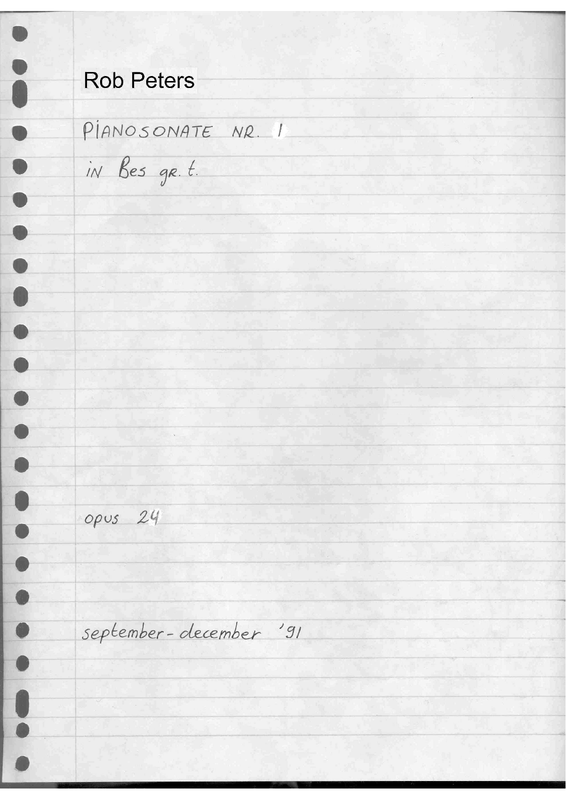 Rob Peters
PIANOSONATE NR. 1
in Bes gr. t.
opus 24
september - december '91